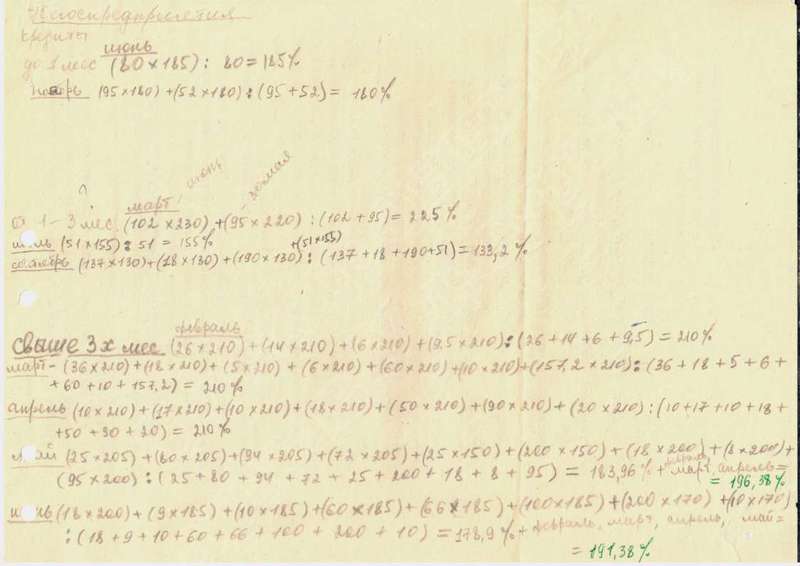 кредиты
июнь
до 1 мес (80 × 185) : 80 = 185%
(95 × 180) + (52 × 180) : (95 + 52) = 180%
июнь
март
1 – 3 мес. (102 × 230) + (95 × 220) : (102 + 95) = 225%
июль (51 × 155) : 51 = 155%
+(51 × 155)
сентябрь (137 × 130) + (18 × 130) + (190 × 130) : (137 + 18 + 190 + 51) = 133,2%
февраль
свыше 3х мес (26 × 210) + (14 × 210) + (6 × 210) + (9,5 × 210) : (26 + 14 + 6 + 9,5) = 210%
март – (36 × 210) + (18 × 210) + (5 × 210) + (6 × 210) + (60 × 210) + (10 × 210) + (157,2 × 210) : (36 + 18 + 5 + 6 +
+ 60 + 10 + 157,2) = 210%
апрель (10 × 210) + (17 × 210) + (10 × 210) + (18 × 210) + (50 × 210) + (90 × 210) + (20 × 210) : (10 + 17 + 10 + 18 +
+ 50 + 30 + 20) = 210%
май (25 × 205) + (80 × 205) + (94 × 205) + (72 × 205) + (25 × 150) + (200 × 150) + (18 × 200) + (8 × 200) +
(95 × 200) : (25 + 80 + 94 + 72 + 25 + 200 + 18 + 8 + 95) = 183,96% + март, апрель =
= 196,38%
июнь (18 × 200) + (9 × 185) + (10 × 185) + (60 × 185) + (66 × 185) + (100 × 185) + (200 × 170) + (10 × 170)
: (18 + 9 + 10 + 60 + 66 + 100 + 200 + 10) = 178,9% + февраль, март, апрель, май =
= 191,38%